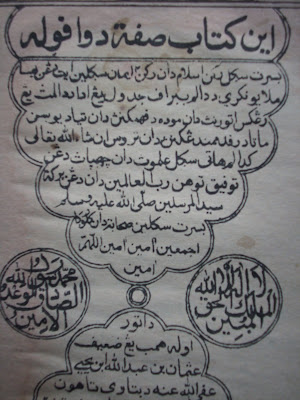 اين كتاب صفة دوا فوله
بسرت سكل ركن اسلام دان ركن ايمان سكلين ايت دغن بهسا
ملايو ددالم ببراف جدول يغ
دان موده دفهمكن دان تياد بوسن
مات دفندغكن دان تروس ان شاء الله تعالى
كدالم هاتي سكل علموث دان جهياث دغن
توفيق توهن رب العالمين دان دغن بركة
سيد المرسلين صلى الله عليه وسلم
بسرت سكلين صحابة دان كلورك
اجمعين امين امين اللهم
امين
لا اله الا الله الملك الحق المبين
محمد رسول الله الصادق الوعد الامين
داتور
اوله همب يغ ضعيف
عثمان بن عبد الله ابن يحيى
عفا الله عنه دبتاوي تاهون